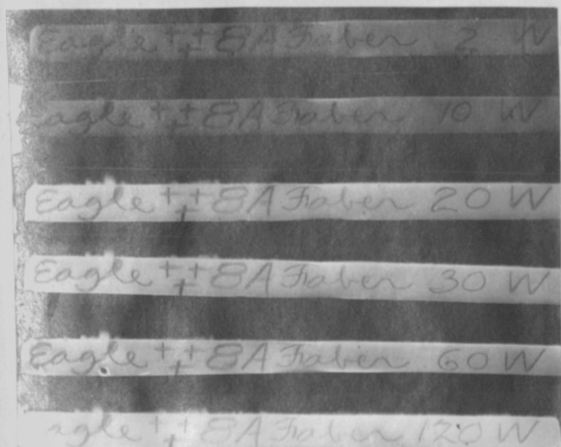 Eagle +++ 8A Faber 2 W
Eagle +++ 8A Faber 10 W
Eagle +++ 8A Faber 20 W
Eagle +++ 8A Faber 30 W
Eagle +++ 8A Faber 60 W
agle +++ 8A Faber 120 W